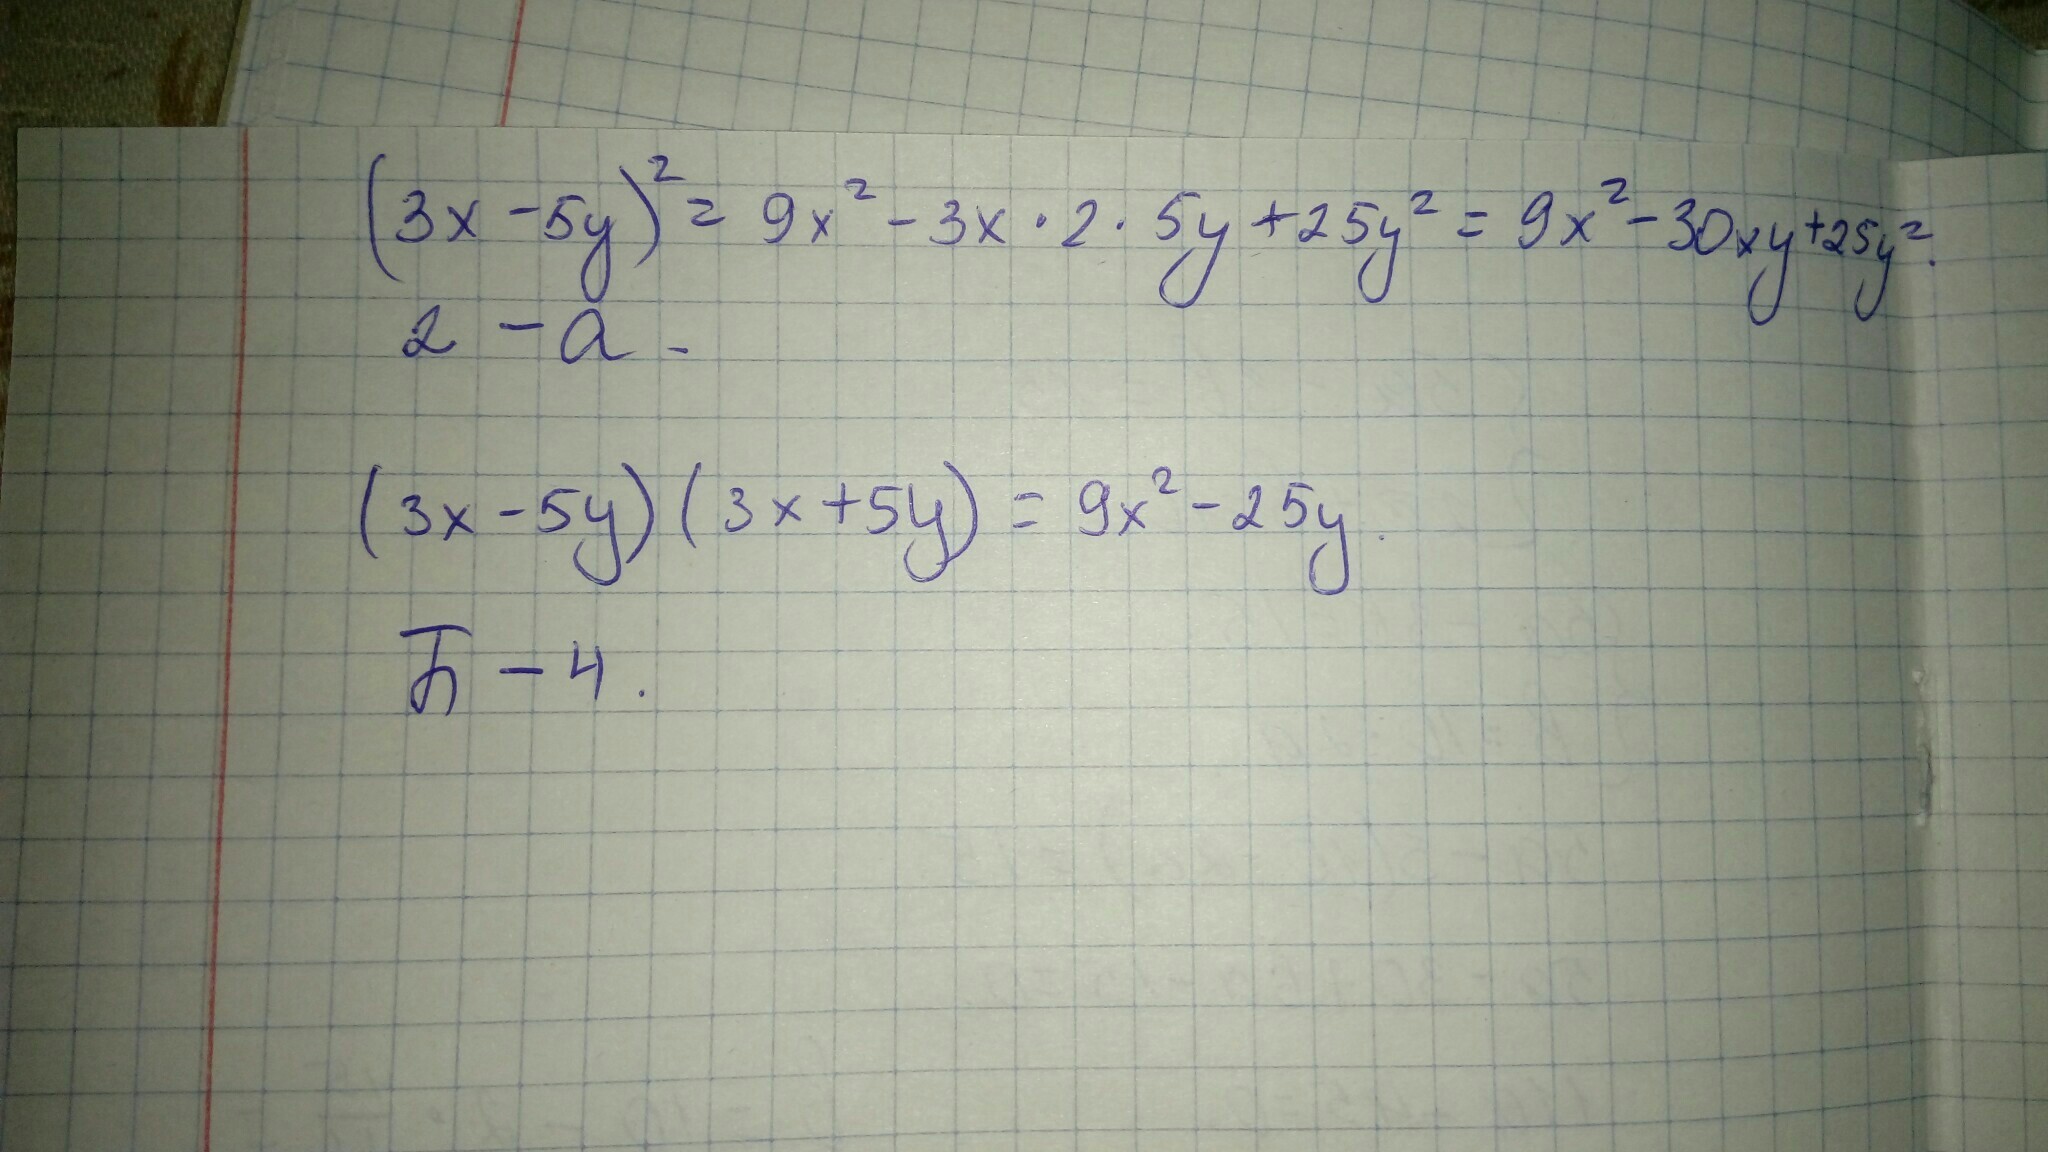 (3x - 5y)² = 9x² - 3x · 2 · 5y + 25y² = 9x² - 30xy + 25y².
2 - а -
(3x - 5y)(3x + 5y) = 9x² - 25y.
Б - 4.